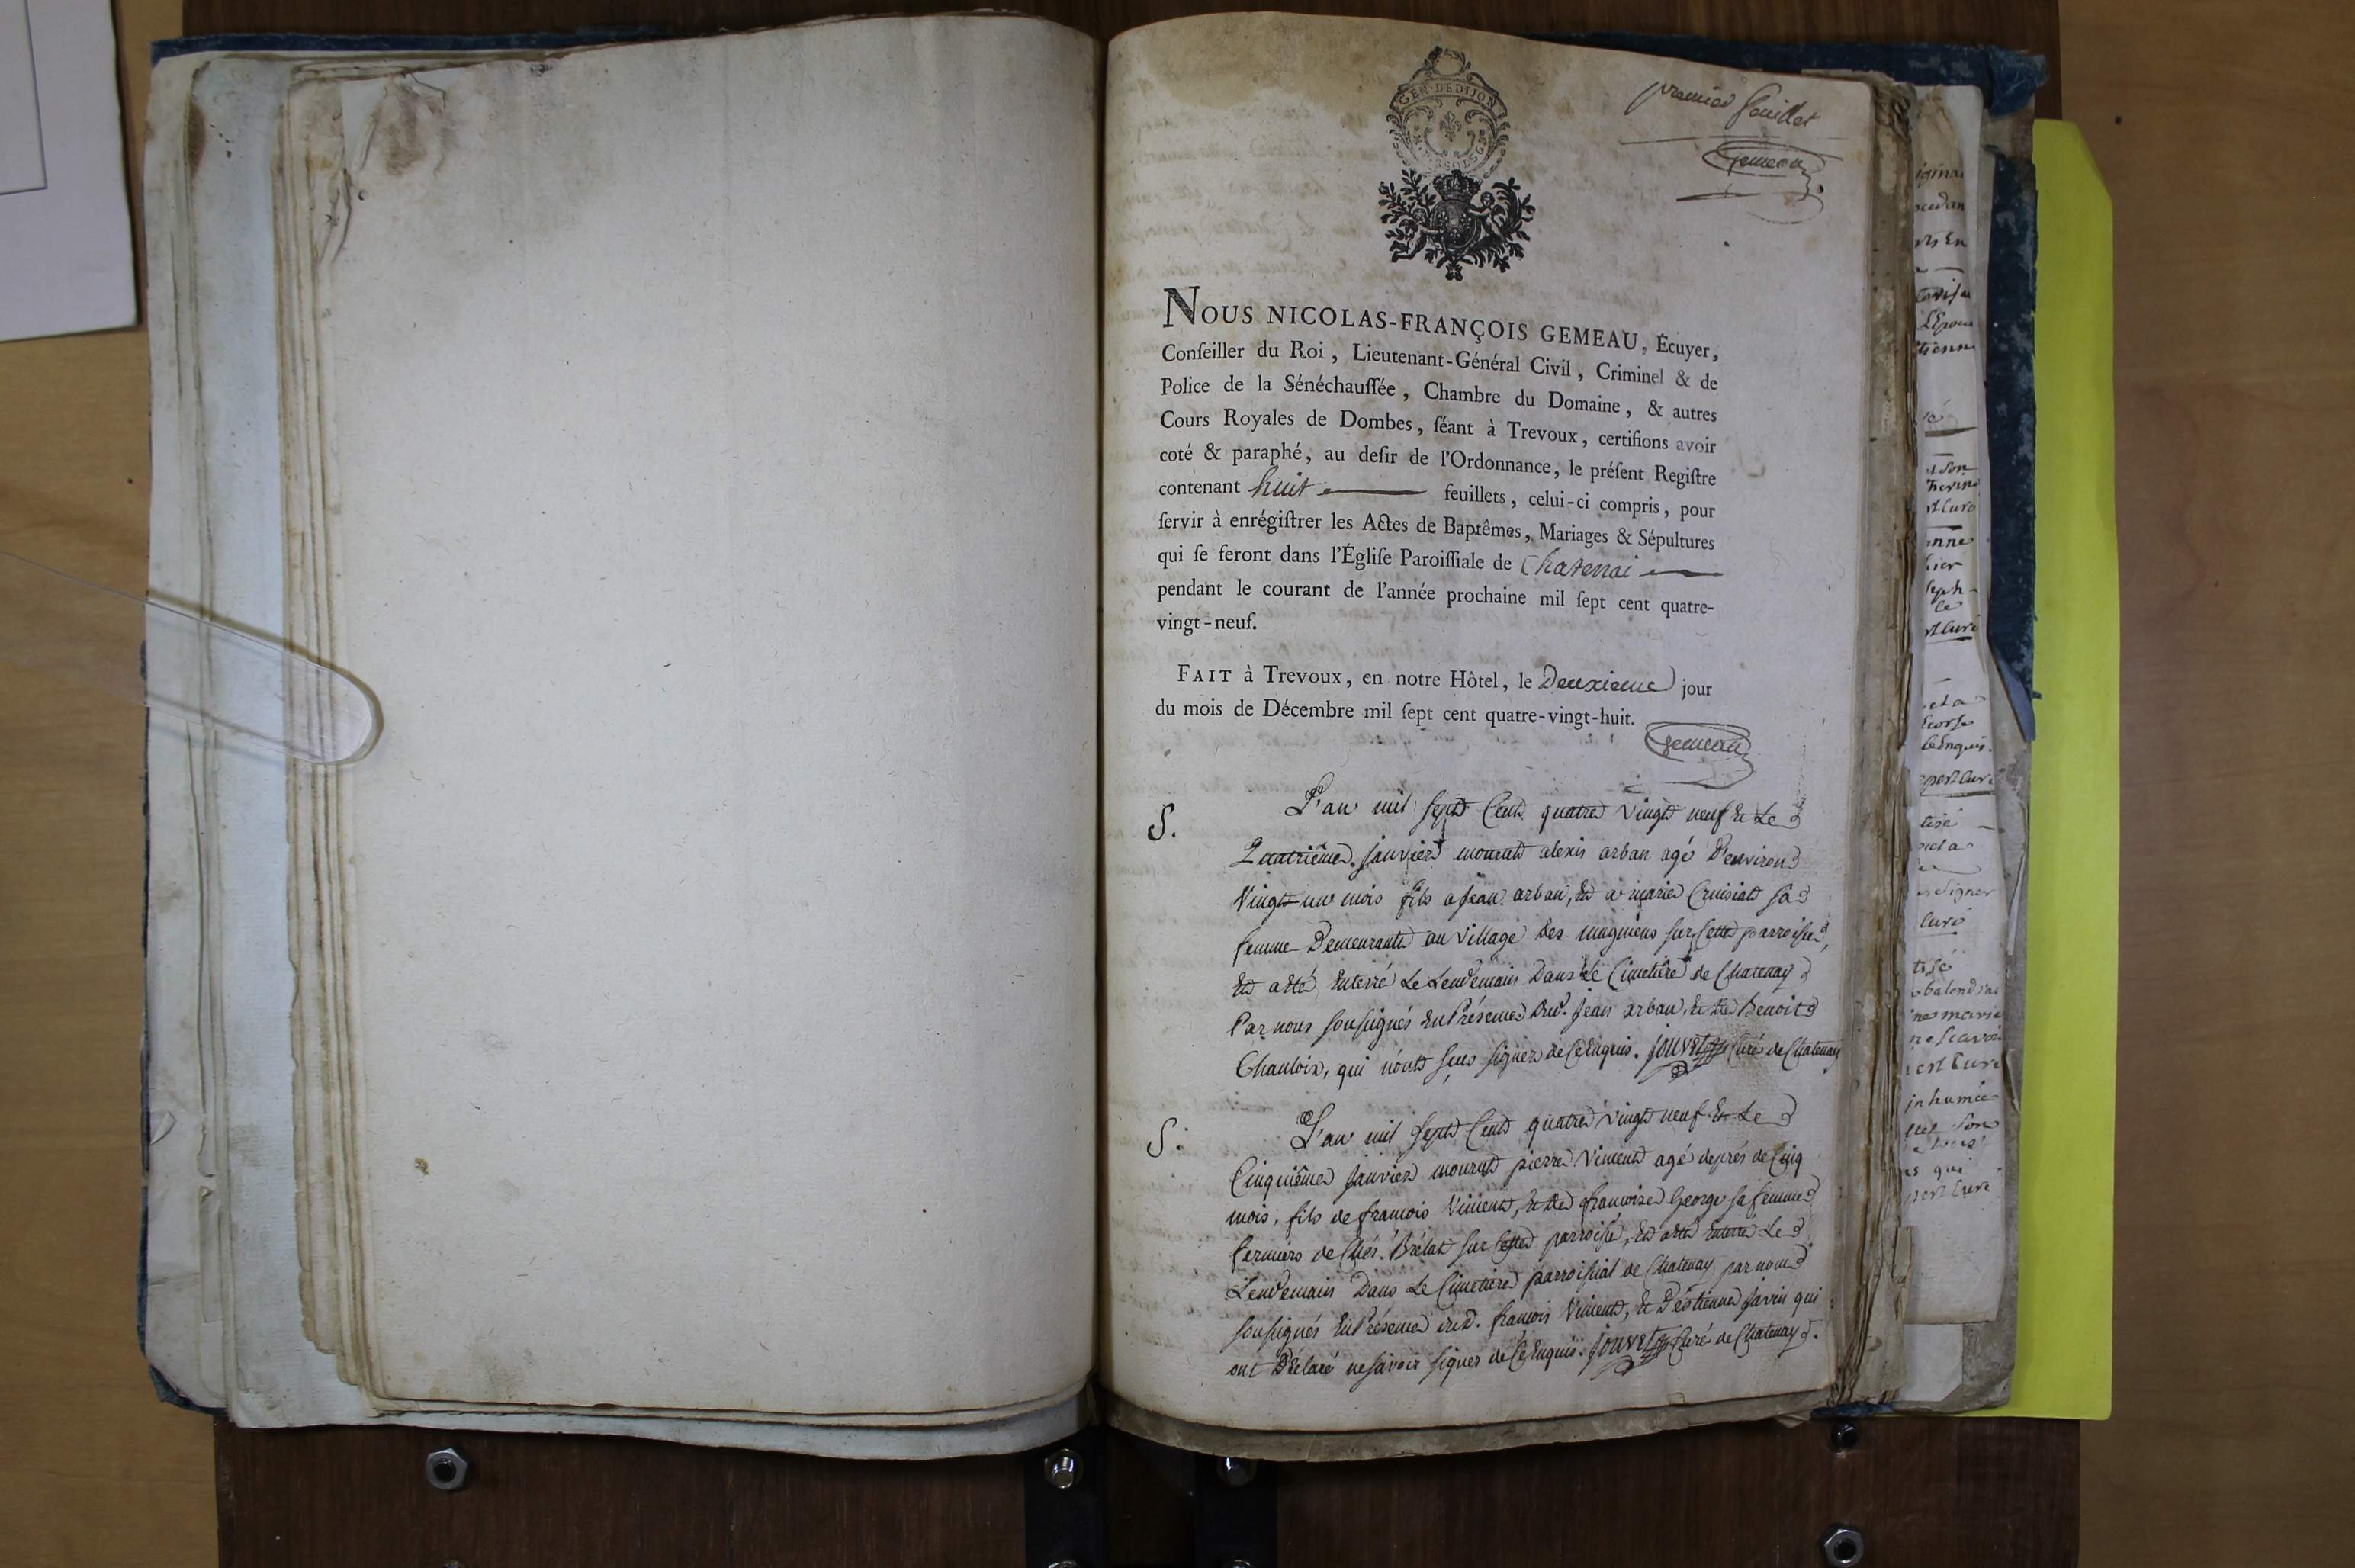 GEN. DE DIJON
premier feuillet
Gemeau
NOUS NICOLAS-FRANÇOIS GEMEAU, Écuyer,
Conſeiller du Roi, Lieutenant-Général Civil, Criminel & de
Police de la Sénéchauſſée, Chambre du Domaine, & autres
Cours Royales de Dombes, ſéant à Trevoux, certifions avoir
coté & paraphé, au deſir de l'Ordonnance, le préſent Regiſtre
contenant huit feuillets, celui-ci compris, pour
ſervir à enrégiſtrer les Actes de Baptêmes, Mariages & Sépultures
qui ſe feront dans l'Égliſe Paroiſſiale de Chatenai
pendant le courant de l'année prochaine mil ſept cent quatre-
vingt-neuf.
FAIT à Trevoux, en notre Hôtel, le Deuxieme jour
du mois de Décembre mil ſept cent quatre-vingt-huit.
Gemeau
S.
L'an mil sept Cent quatre vingt neuf et Le
Quatriême janvier mourut alexis arban agé D'environ
Vingt-un mois fils a jean arban, et a marie Cruisiat sa
femme Demeurants au village des sur Cette parroisse,
Et a eté Enterré Le Lendemain Dans Le Cimetiêre de Chatenay
Par nous soussignés En Présence dud. jean arban, et de Benoit
Chanloix, qui n'ont sçus signer de Ce Enquis. jouvet Curé de Chatenay
S.
L'an mil sept Cent quatre vingt neuf Et Le
Cinquiême janvier mourut pierre Viment agé de prés de Cinq
mois, fils de francois Viment, et de francoise George sa femme
fermiers de Chés. Brélat sur Cette parroisse, Et a eté Enterré Le
Lendemain Dans Le Cimetiere parroissial de Chatenay par nous
soussignés En Présence dud. francois Viment, et D'éstienne javin qui
ont Déclaré ne savoir signer de Ce Enquis. jouvet Curé de Chatenay.